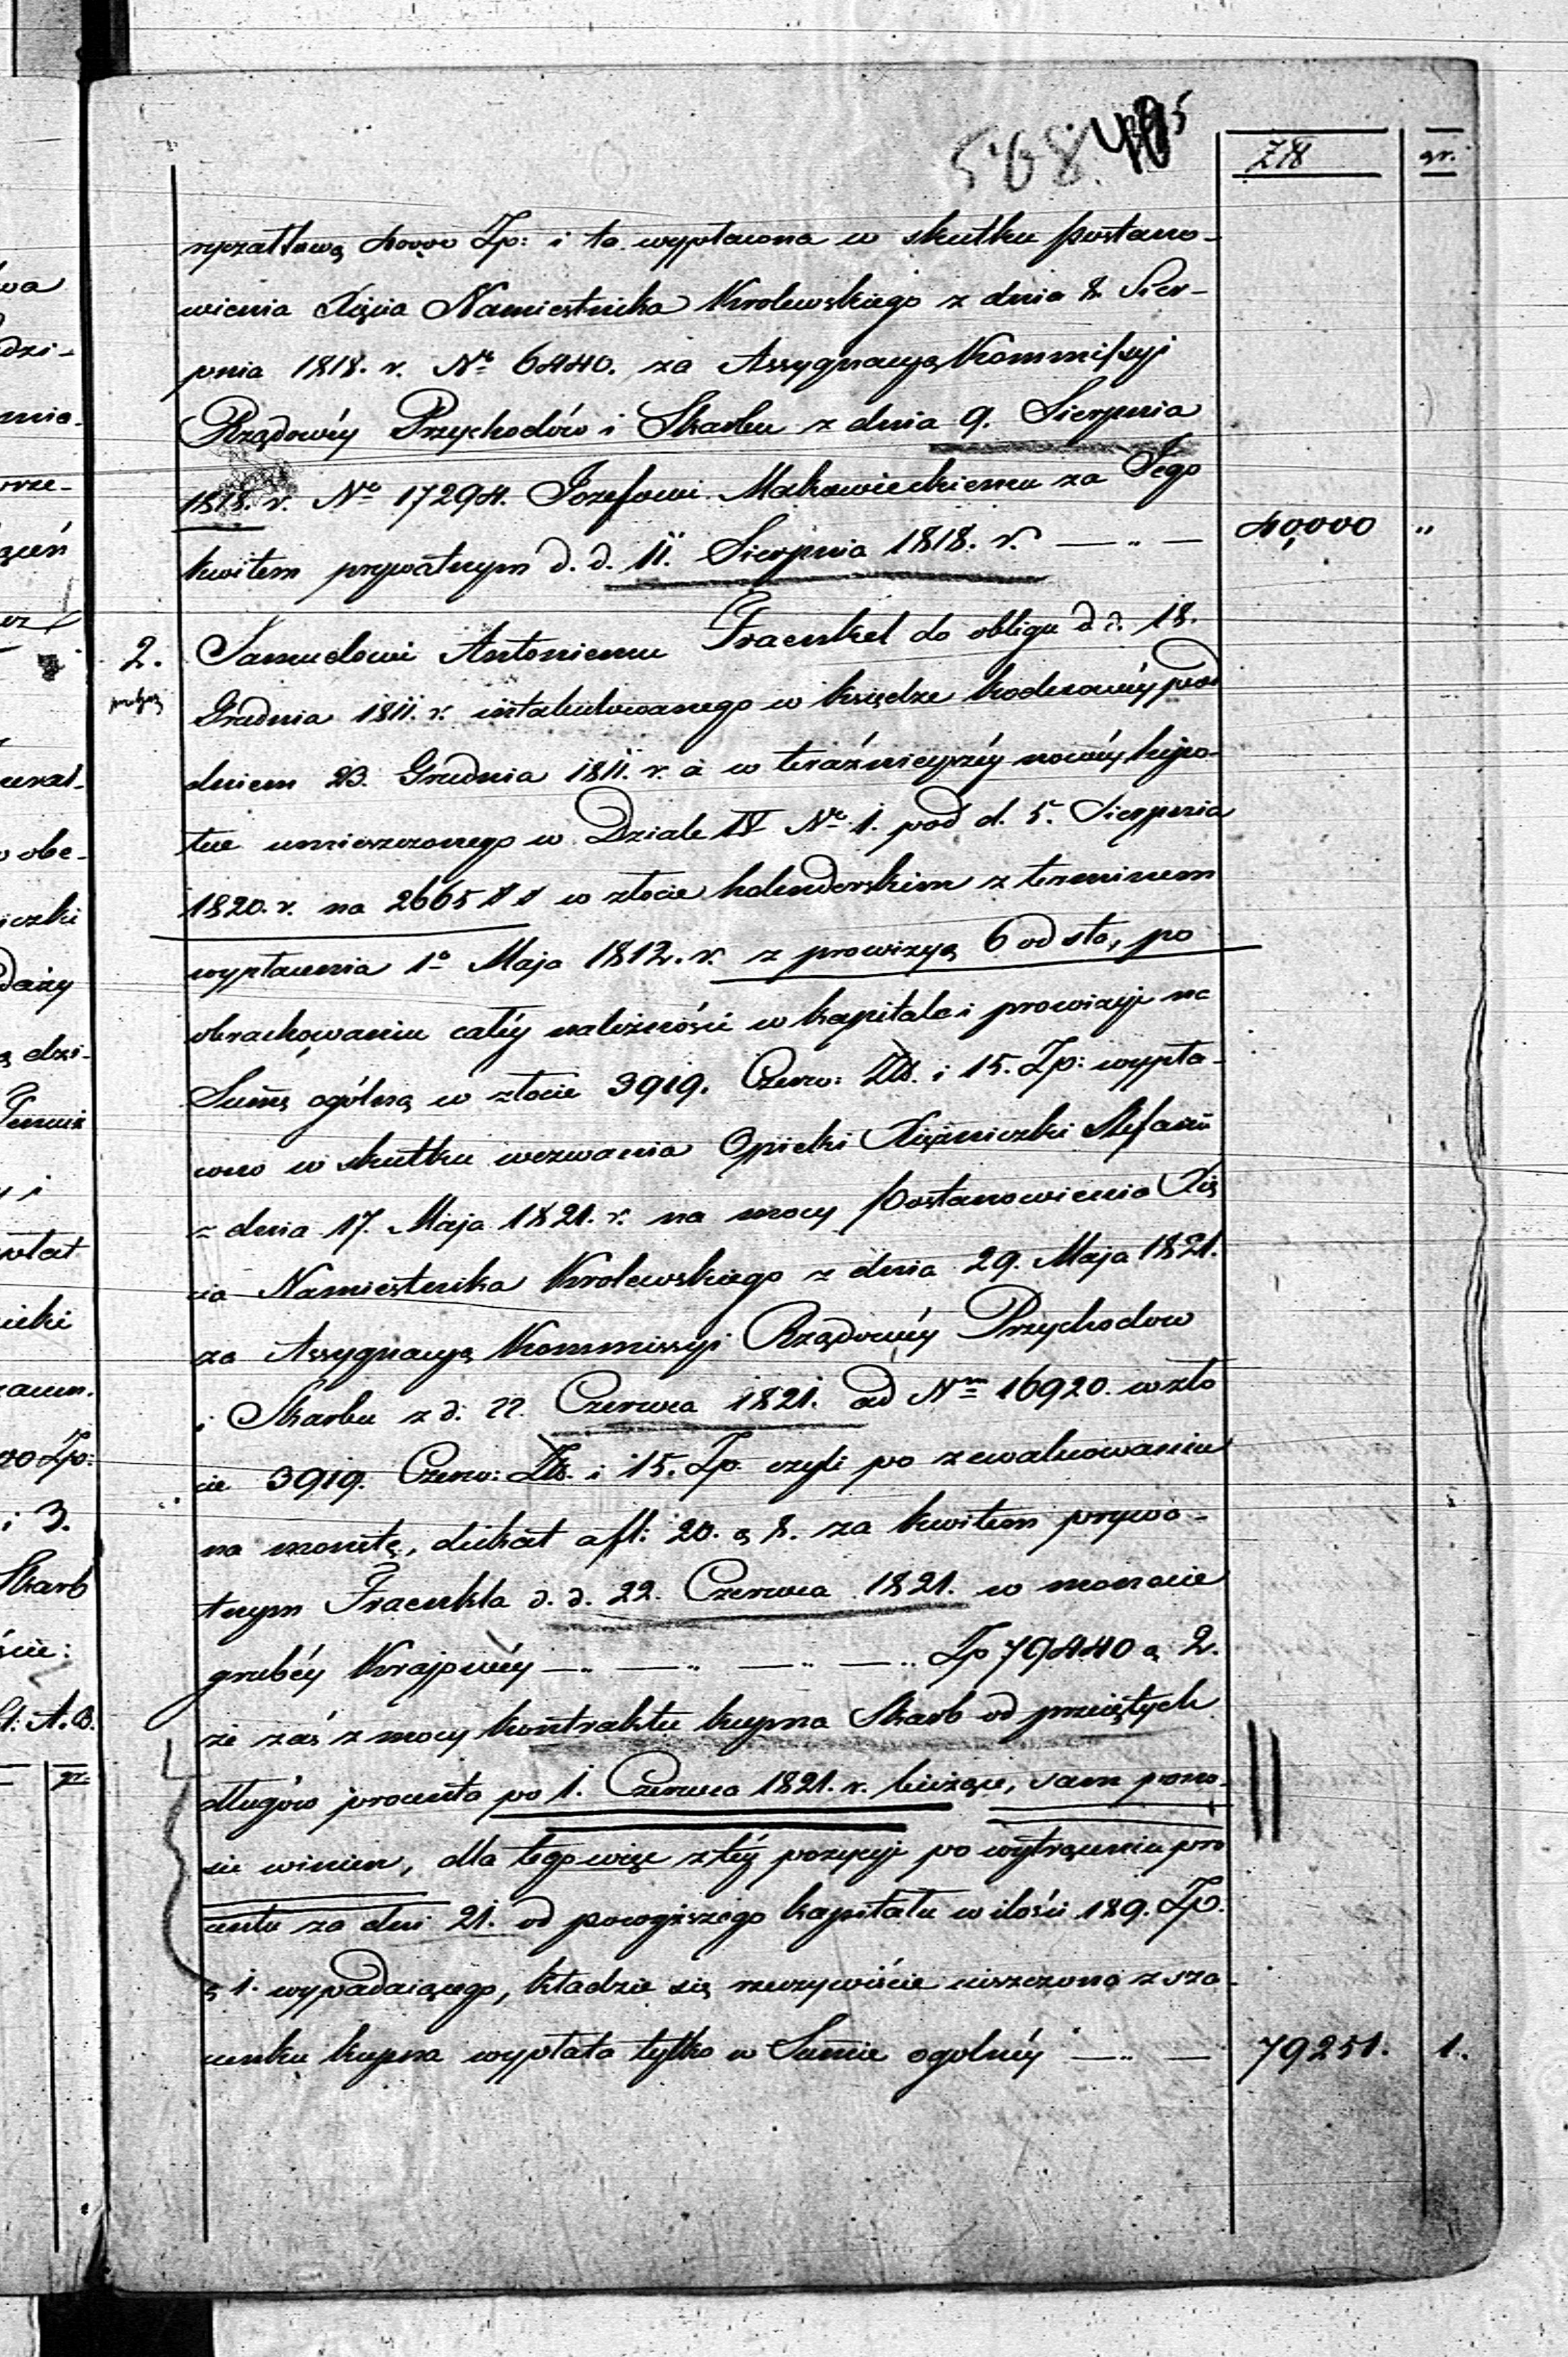 568. 495
Złł gr.
ryczałtową 40,000 Zp: i ta wypłacona w skutku postano-
wienia Xięcia Namiestnika Krolewskiego z dnia 8. Sier-
pnia 1818. r. No 6440. za Assygnacyą Kommissyi
Rządowéy Przychodów i Skarbu z dnia 9. Sierpnia
1818. r. No 17294. Jozefowi Makowieckiemu za Jego
kwitem prywatnym d. d. 11. Sierpnia 1818. r. — „ — 40,000 „
2. Samuelowi Antoniemu Fraenkel do obligu d d. 18.
Grudnia 1811. r. intabulowanego w księdze kodexowéy pod
dniem 23. Grudnia 1811. r. a w teraźnieyszéy nowéy hypo-
tece umieszczonego w Dziale IV No 1. pod d. 5. Sierpnia
1820. r. na 2665 ## w złocie holenderskim z terminem
wypłacenia 1o Maja 1812. r. z prowizyą 6 od sto, po
obrachowaniu całéy należności w kapitale i prowizyi na
Summę ogólną w złocie 3919. Czerw: Złł. i 15. Zp: wypła-
cono w skutku wezwania Opieki Xiężniczki Stefanii
z dnia 17. Maja 1821. r. na mocy Postanowienia Xię
cia Namiestnika Krolewskiego z dnia 29. Maja 1821.
za Assygnacyą Kommissyi Rządowéy Przychodow
i Skarbu z d. 22. Czerwca 1821. ad Nrm 16920. w zło
cie 3919. Czerw: Złł. i 15. Zp. czyli po zewaluowaniu
na monetę, dukat a fl: 20. g 8. za kwitem prywa-
tnym Fraenkla d. d. 22. Czerwca 1821. w monecie
grubéy Krajowéy — „ — „ — „ — „ Zp 79440 g 2.
że zaś z mocy kontraktu kupna Skarb od przeiętych
długów procenta po 1. Czerwca 1821. r. bieżące, sam pono-
sić winien, dla tego więc z téy pozycyi po wytrąceniu pro
centu za dni 21. od powyższego kapitału w ilości 189. Zp.
g 1. wypadaiącego, kładzie się rzeczywiście uiszczona z sza-
cunku kupna wypłata tylko w Summie ogolnéy — „ — 79251. 1.